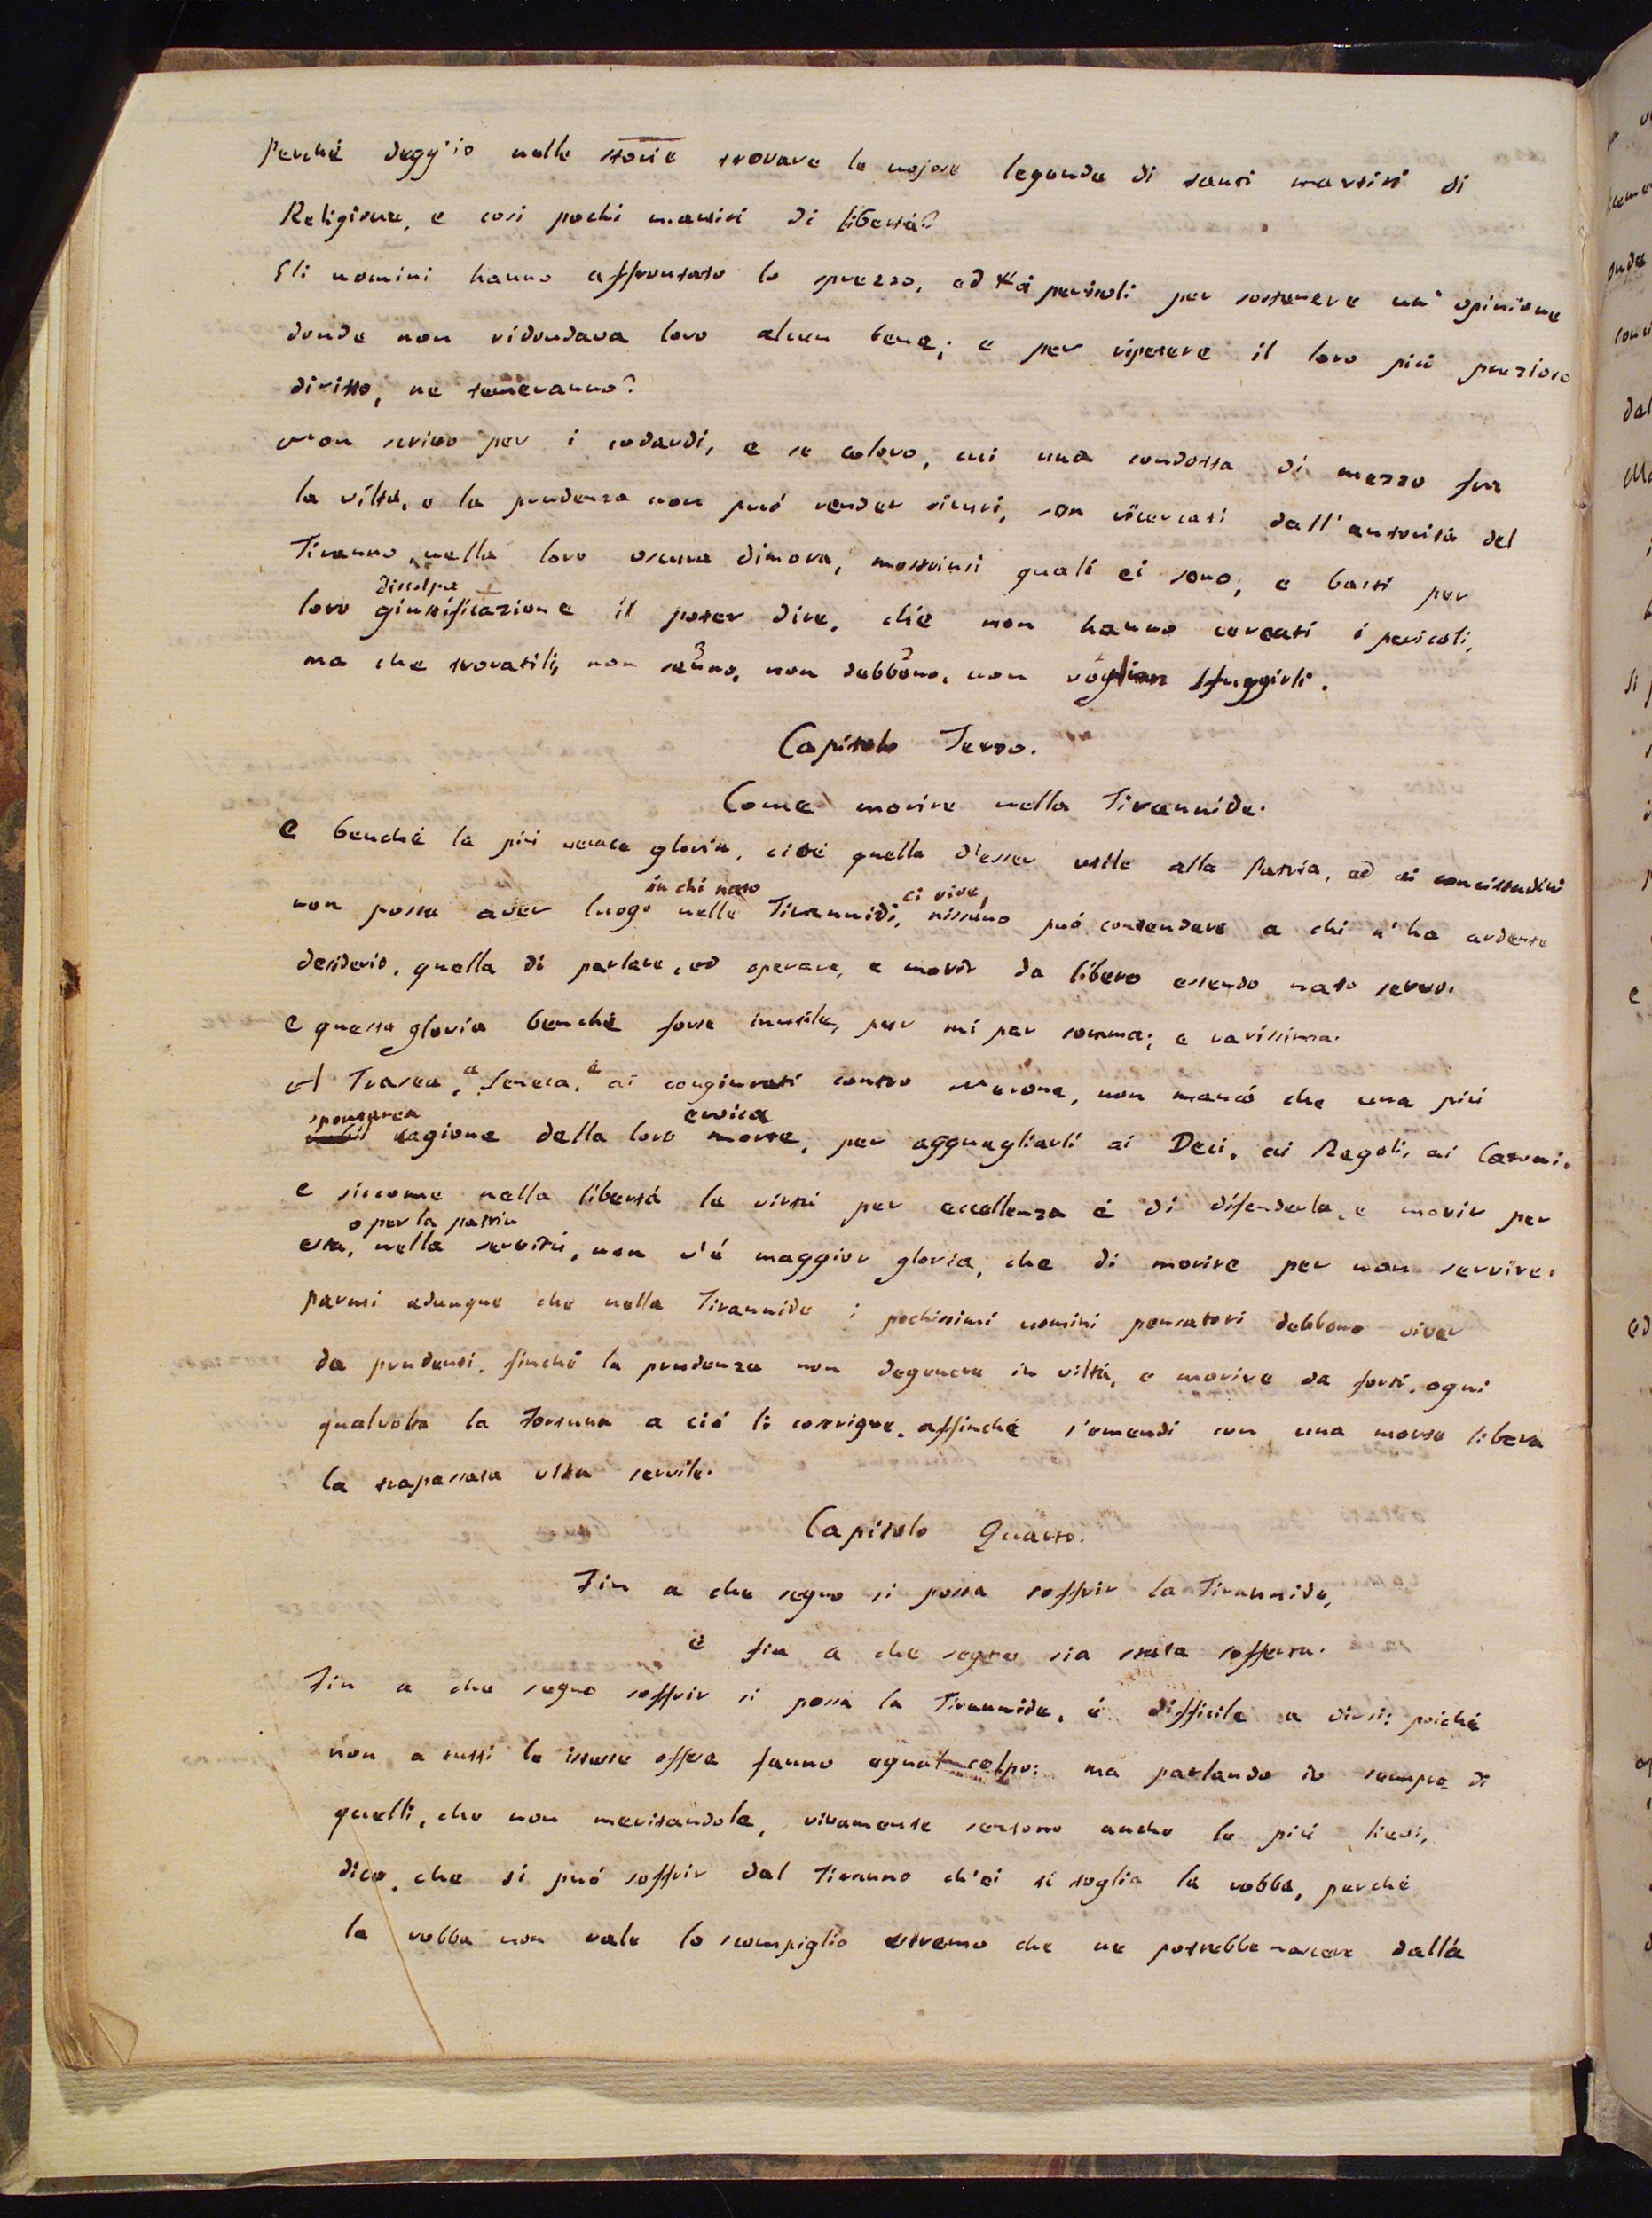 Perché degg'io nelle storie trovare le nojose legende di tanti martiri di
Religione, e così pochi martiri di libertà?
Gli uomini hanno affrontato lo sprezzo, ed i pericoli per sostenere un' opinione
donde non ridondava loro alcun bene; e per ripetere il loro più prezioso
diritto, ne temeranno?
Non scrivo per i codardi, e se coloro, cui una condotta di mezzo fra
la viltà, e la prudenza non può render sicuri, son ricercati dall' autorità del
Tiranno nella loro oscura dimora, mostrinsi quali ei sono, e basti per
discolpa
loro giustificazione il poter dire, che non hanno cercati i pericoli,
ma che trovatili, non sanno, non debbono, non voglion sfuggirli.
Capitolo Terzo.
Come morire nella Tirannide.
E benché la più verace gloria, cioè quella d'esser utile alla Patria, ed ai concittadini
in chi nato ci vive,
non possa aver luogo nelle Tirannidi, nissuno può contendere a chi n'ha ardente
desiderio, quella di parlare, ed operare, e morir da libero essendo nato servo.
e questa gloria benché forse inutile, pur mi par somma; e rarissima.
A Trasea, a Seneca, e ai congiurati contro Nerone, non mancò che una più
spontanea eroica
ragione della loro morte, per agguagliarli ai Deci, ai Regoli, ai Catoni.
e siccome nella libertà la virtù per eccellenza è di difenderla, e morir per
o per la patria
essa, nella servitù, non v'é maggior gloria, che di morire per non servire.
parmi adunque che nella Tirannide i pochissimi uomini pensatori debbono viver
da prudenti, finché la prudenza non degenera in viltà, e morire da forti, ogni
qualvolta la Fortuna a ciò li costringe, affinché s'emendi con una morte libera
la trapassata vita servile.
Capitolo Quarto.
Fin a che segno si possa soffrir la Tirannide,
e fin a che segno sia stata sofferta.
Fin a che segno soffrir si possa la Tirannide, é difficile a dirsi: poiché
non a tutti le istesse offese fanno egual colpo: ma parlando io sempre di
quelli, che non meritandole, vivamente sentono anche le più lievi,
dico, che si può soffrir dal Tiranno ch'ei ti toglia la robba, perché
la robba non vale lo scompiglio estremo che ne potrebbe nascere dalla